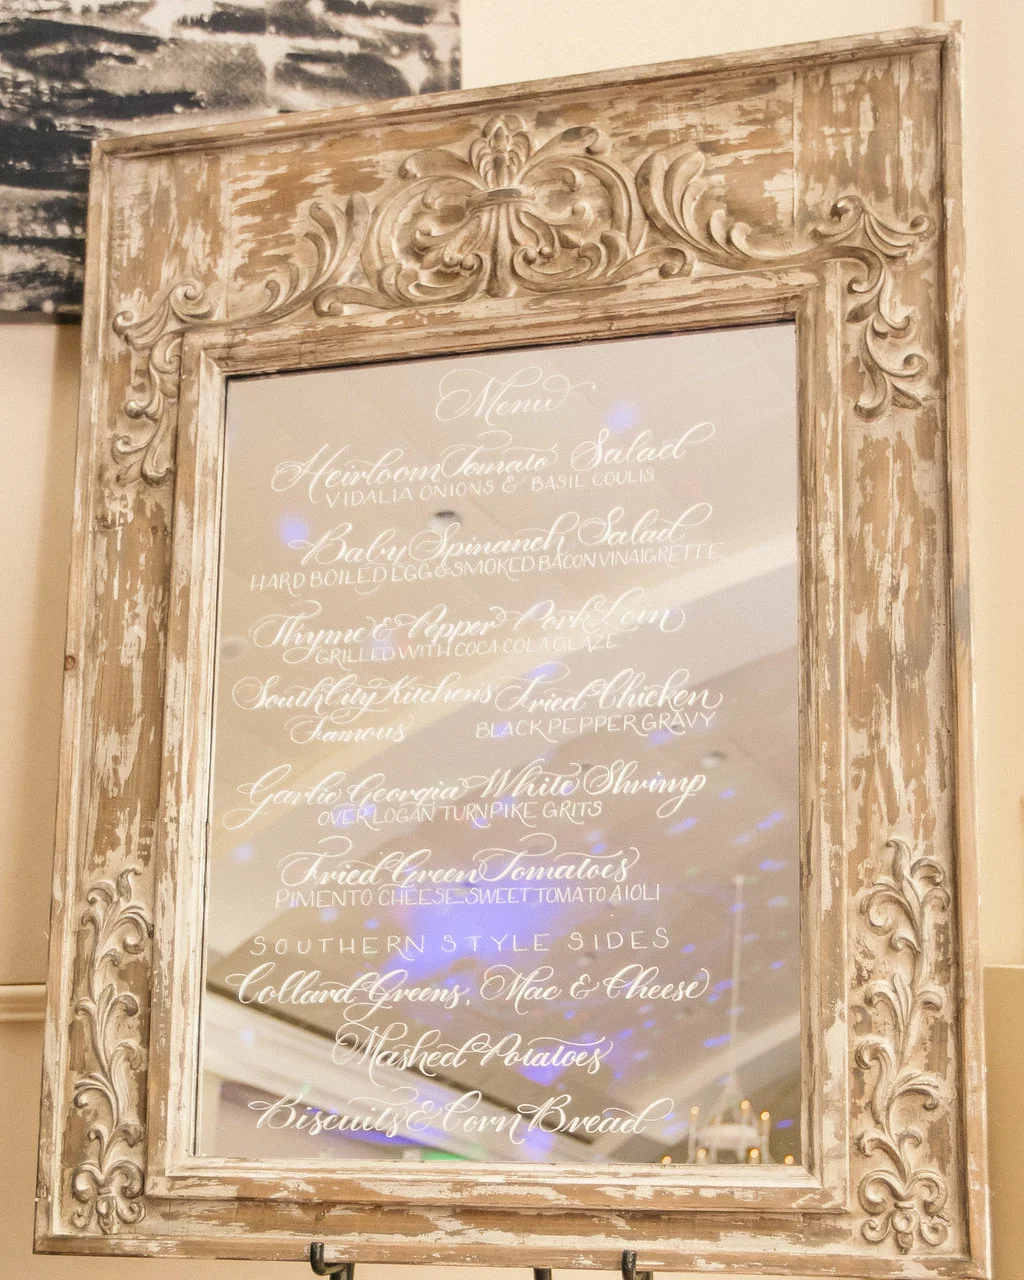 Menu
Heirloom Tomato Salad
VIDALIA ONIONS & BASIL COULIS
Baby Spinach Salad
HARD BOILED EGG & SMOKED BACON VINAIGRETTE
Thyme & Pepper Pork Loin
GRILLED WITH COCA COLA GLAZE
South City Kitchen's Fried Chicken
Famous BLACK PEPPER GRAVY
Garlic Georgia White Shrimp
OVER LOGAN TURNPIKE GRITS
Fried Green Tomatoes
PIMENTO CHEESE, SWEET TOMATO AIOLI
SOUTHERN STYLE SIDES
Collard Greens, Mac & Cheese
Mashed Potatoes
Biscuits & Corn Bread